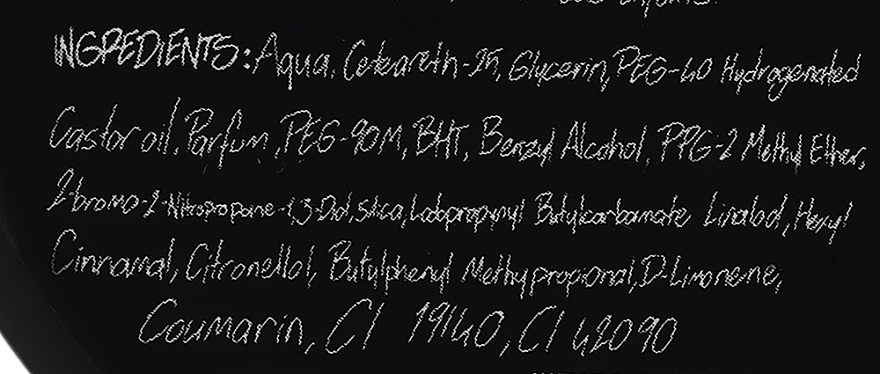 INGREDIENTS: Aqua, Ceteareth-25, Glycerin, PEG-40 Hydrogenated
Castor oil, Parfum, PEG-90M, BHT, Benzyl Alcohol, PPG-2 Methyl Ether,
2-bromo-2-Nitropropane-1,3-Diol, Silica, Iodopropynyl Butylcarbamate Linalool, Hexyl
Cinnamal, Citronellol, Butylphenyl Methylpropional, D-Limonene,
Coumarin, CI 19140, CI 42090